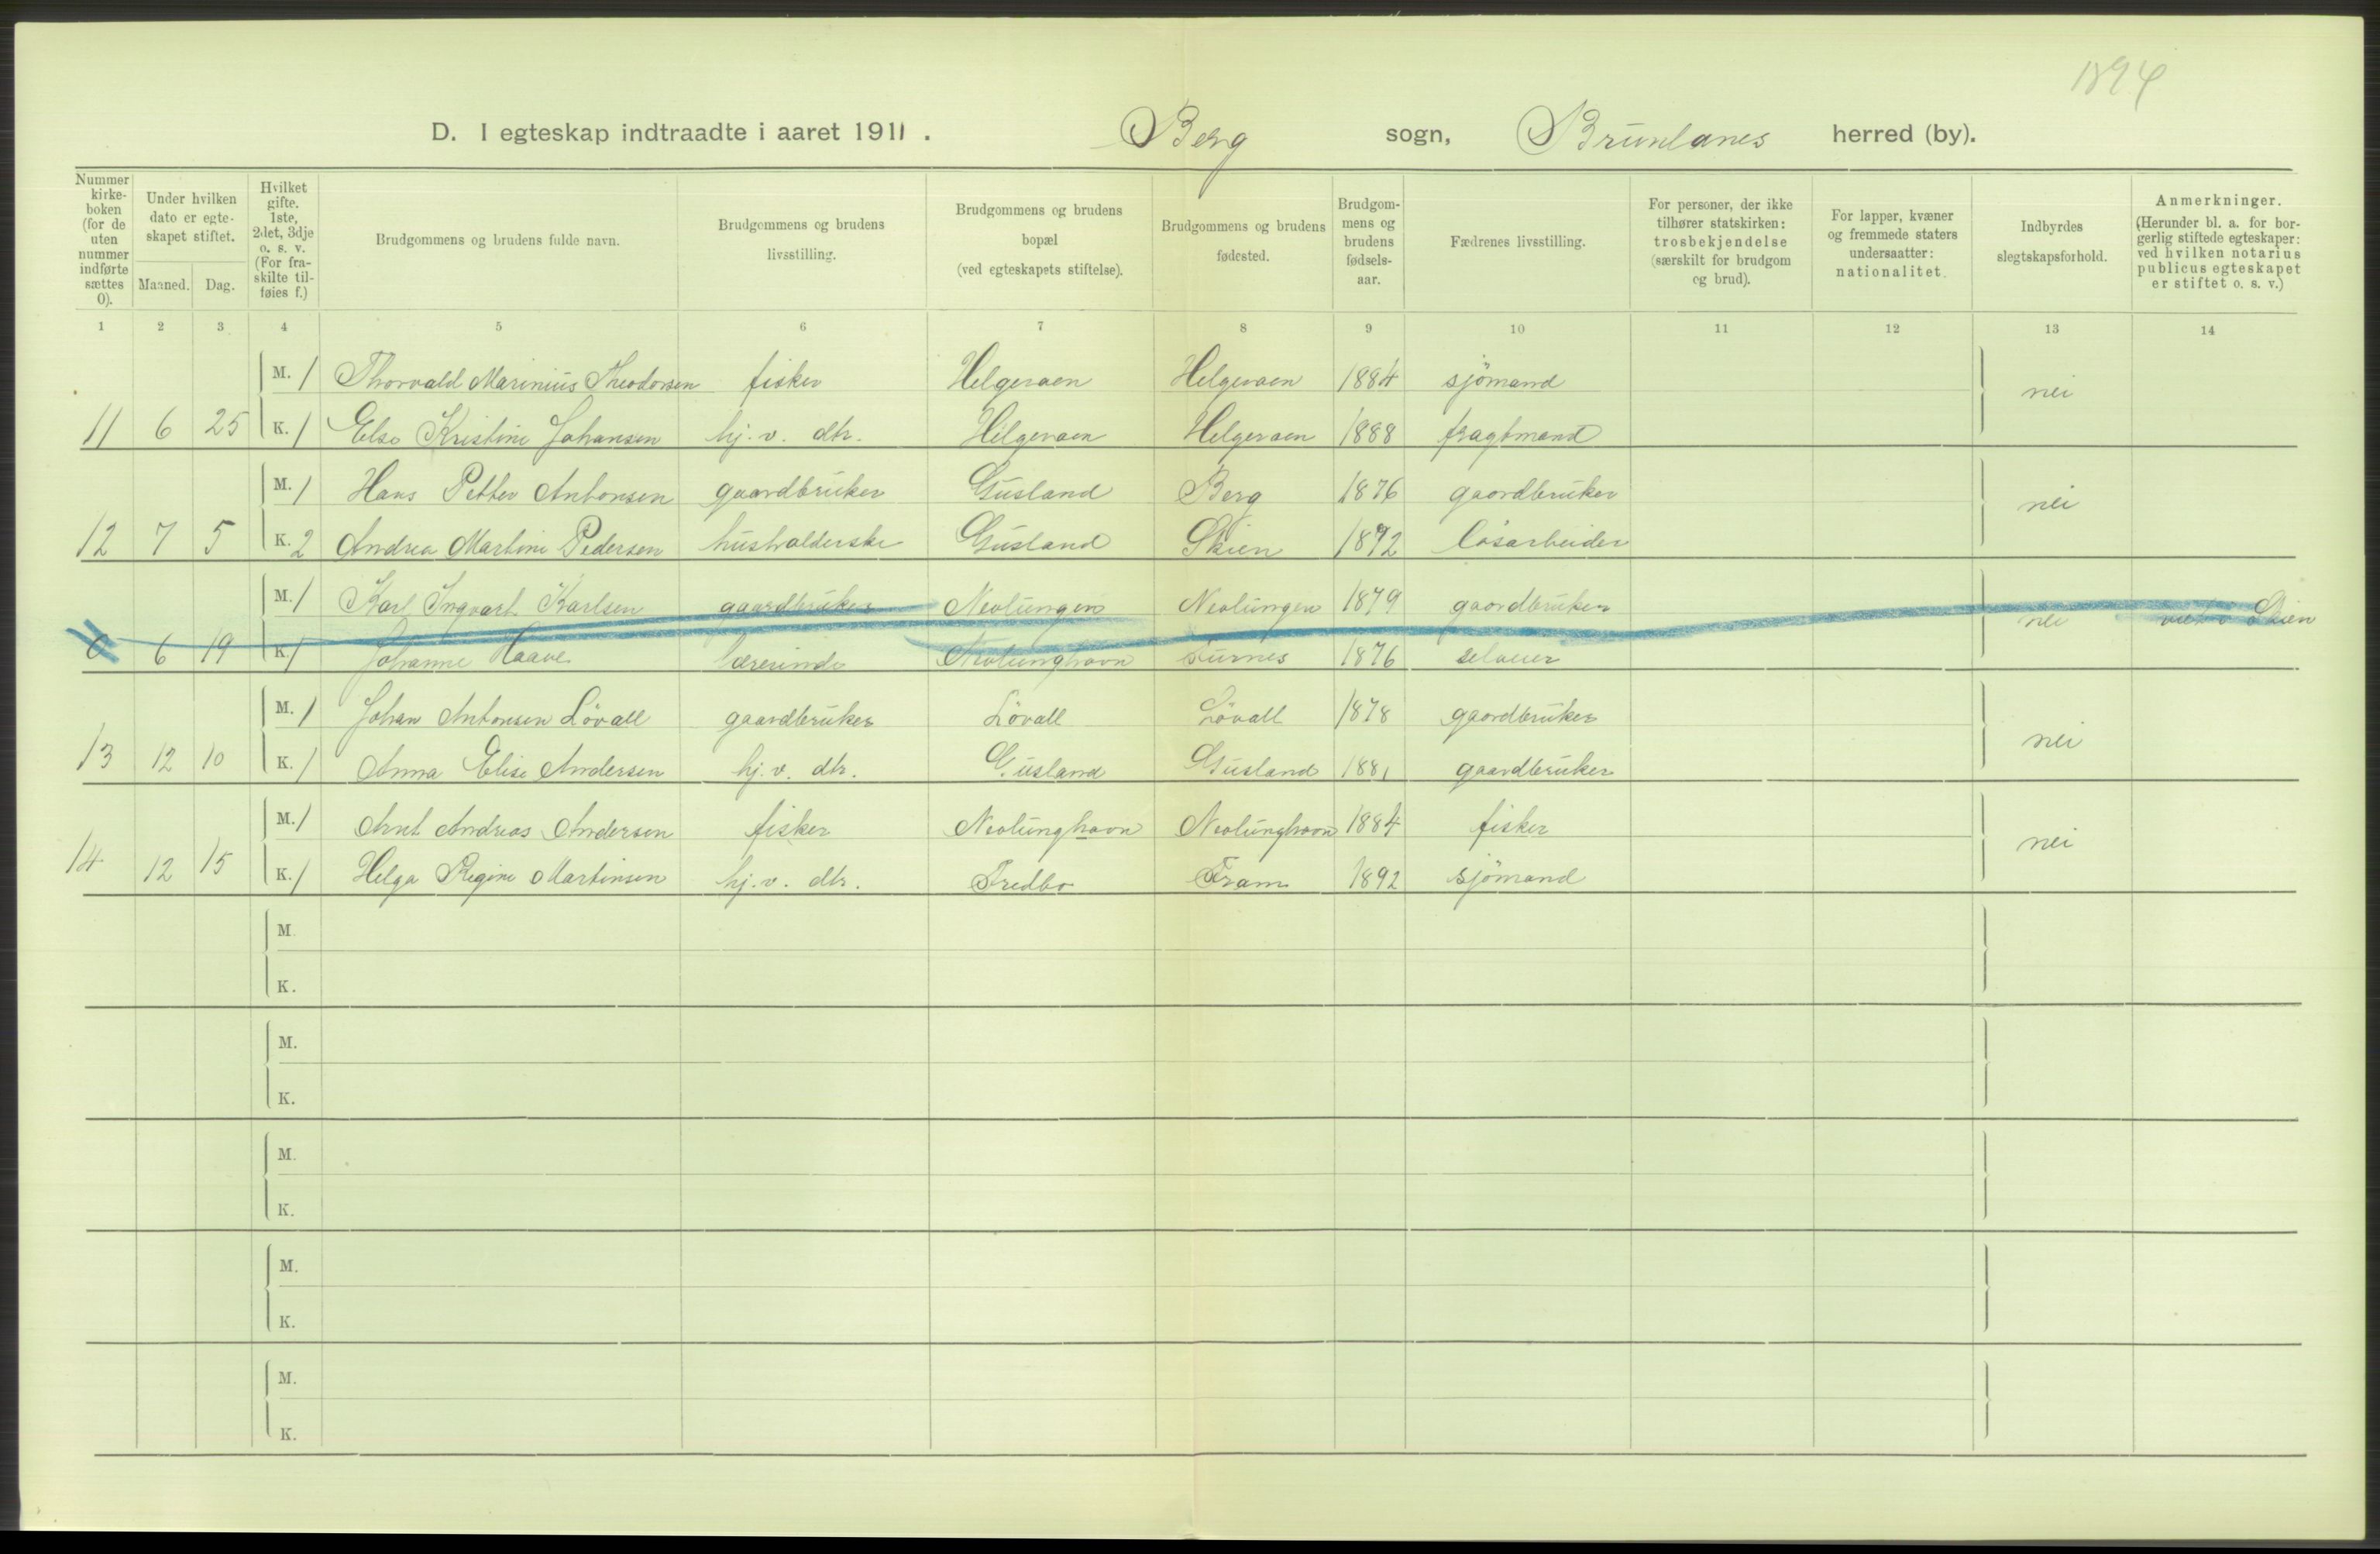 1894
D. I egteskap indtraadte i aaret 1911. Berg sogn, Brunlanes herred (by).
Nummer kirke-boken (for de uten nummer indførte sættes 0).
Under hvilken dato er egte-skapet stiftet.
Maaned. Dag.
Hvilket gifte. 1ste, 2det, 3dje o. s. v. (For fra-skilte til-føies f.)
Brudgommens og brudens fulde navn.
Brudgommens og brudens livsstilling.
Brudgommens og brudens bopæl (ved egteskapets stiftelse).
Brudgommens og brudens fødested.
Brudgom-mens og brudens fødsels-aar.
Fædrenes livsstilling.
For personer, der ikke tilhører statskirken: trosbekjendelse (særskilt for brudgom og brud).
For lapper, kvæner og fremmede staters undersaatter: nationalitet.
Indbyrdes slegtskapsforhold.
Anmerkninger. (Herunder bl. a. for bor-gerlig stiftede egteskaper: ved hvilken notarius publicus egteskapet er stiftet o. s. v.)
1 2 3 4 5 6 7 8 9 10 11 12 13 14
M. 1 Thorvald Marinius Theodorsen fisker Helgeraen Helgeraen 1884 sjömand nei
11 6 25 K. 1 Else Kristine Johansen hj. v. dtr. Helgeraen Helgeraen 1888 fragtmand
M. 1 Hans Petter Antonsen gaardbruker Gusland Berg 1876 gaardbruker nei
12 7 5 K. 2 Andrea Martine Pedersen husholderske Gusland Skien 1872 løsarbeider
M. 1 Karl Ingvart Karlsen gaardbruker Nevlungen Nevlungen 1879 gaardbruker nei viet i Skien
0 6 19 K. 1 Johanne Haave lærerinde Nevlunghavn 1876
M. 1 Johan Antonsen Lövall gaardbruker Lövall Lövall 1878 gaardbruker nei
13 12 10 K. 1 Anna Elise Andersen hj. v. dtr. Gusland Gusland 1881 gaardbruker
M. 1 Arnt Andreas Andersen fisker Nevlunghavn Nevlunghavn 1884 fisker nei
14 12 15 K. 1 Helga Regine Martinsen hj. v. dtr. Fredbo Fram 1892 sjömand
M.
K.
M.
K.
M.
K.
M.
K.
M.
K.